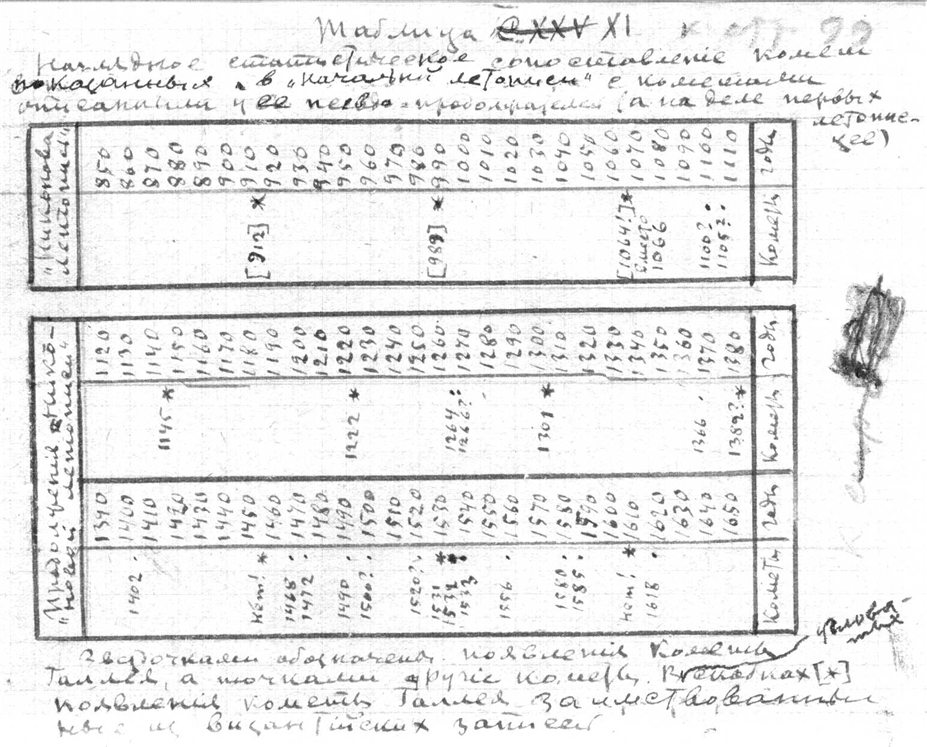 Таблица СXXV XI
Наглядное статистическое сопоставленіе комет
показанных в "начальной летописи" с кометами
описанными у ее продолжателей (а на деле первых
летопис-
цев)
"Никонова
летопись"
850 860 870 880 890 900 910 920 930 940 950 960 970 980 990 1000 1010 1020 1030 1040 1050 1060 1070 1080 1090 1100 1110 годы
[912] * [989] * [1064!] * вместо 1066 1100? . 1105? . Кометы
Продолженія "Нико-
новой летописи"
1120 1130 1140 1150 1160 1170 1180 1190 1200 1210 1220 1230 1240 1250 1260 1270 1280 1290 1300 1310 1320 1330 1340 1350 1360 1370 1380 годы
1145 * 1222 * 1264 . 1266? . 1301 * 1366 . 1382? * Кометы
1390 1400 1410 1420 1430 1440 1450 1460 1470 1480 1490 1500 1510 1520 1530 1540 1550 1560 1570 1580 1590 1600 1610 1620 1630 1640 1650 годы
1402 . нет! * 1468 . 1472 . 1490 . 1500? . 1520? . 1531 * 1532 . 1533 . 1556 . 1580 . 1585 . нет! * 1618 . Кометы
Звездочками обозначены появленія Кометы
Галлея, а точками другіе кометы. В скобках [*]
угловa-
тых
появленія кометы Галлея заимствован
ные из византійских записей